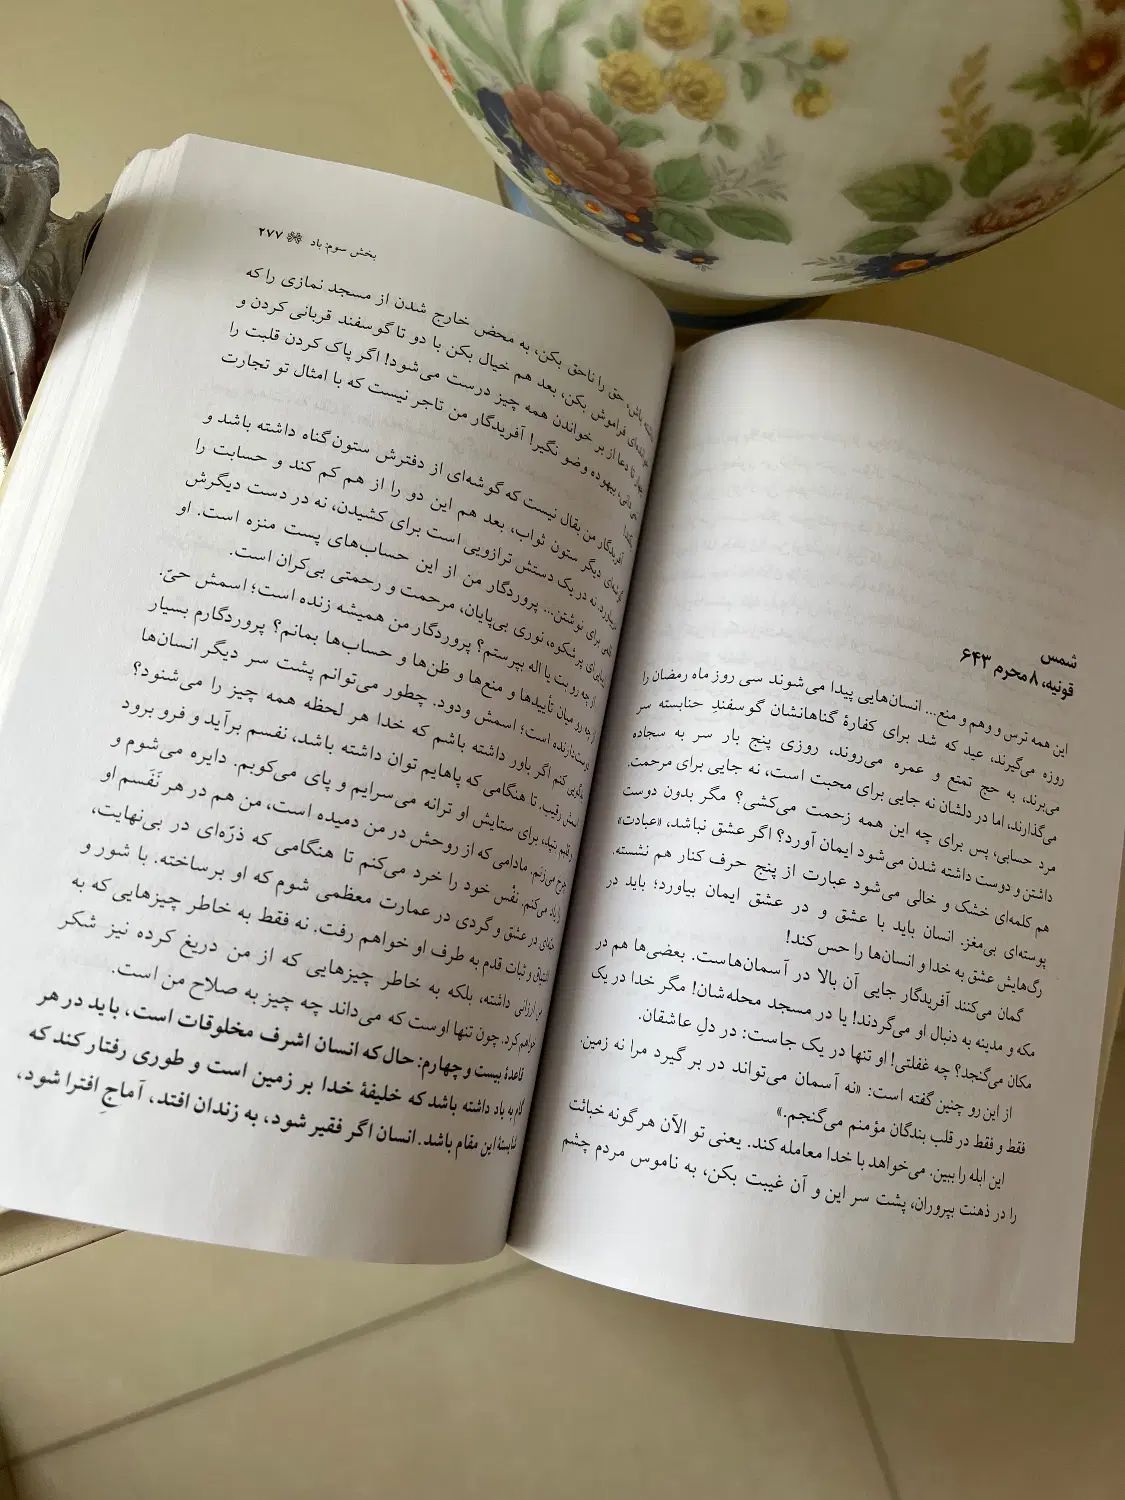 شمس
قونیه، ۸ محرم ۶۴۳
این همه ترس و وهم و منع... انسان‌هایی پیدا می‌شوند سی روز ماه رمضان را
روزه می‌گیرند، عید که شد برای کفارهٔ گناهانشان گوسفندِ حنابسته سر
می‌برند، به حج تمتع و عمره می‌روند، روزی پنج بار سر به سجاده
می‌گذارند، اما در دلشان نه جایی برای محبت است، نه جایی برای مرحمت.
مرد حسابی، پس برای چه این همه زحمت می‌کشی؟ مگر بدون دوست
داشتن و دوست داشته شدن می‌شود ایمان آورد؟ اگر عشق نباشد، «عبادت»
هم کلمه‌ای خشک و خالی می‌شود عبارت از پنج حرف کنار هم نشسته.
پوسته‌ای بی‌مغز. انسان باید با عشق و در عشق ایمان بیاورد؛ باید در
رگ‌هایش عشق به خدا و انسان‌ها را حس کند!
گمان می‌کنند آفریدگار جایی آن بالا در آسمان‌هاست. بعضی‌ها هم در
مکه و مدینه به دنبال او می‌گردند! یا در مسجد محله‌شان! مگر خدا در یک
مکان می‌گنجد؟ چه غفلتی! او تنها در یک جاست: در دلِ عاشقان.
از این رو چنین گفته است: «نه آسمان می‌تواند در بر گیرد مرا نه زمین.
فقط و فقط در قلب بندگان مؤمنم می‌گنجم.»
این ابله را ببین. می‌خواهد با خدا معامله کند. یعنی تو الآن هرگونه خباثت
را در ذهنت بپروران، پشت سر این و آن غیبت بکن، به ناموس مردم چشم
بخش سوم: باد ۲۷۷
باش، حق را ناحق بکن، به محض خارج شدن از مسجد نمازی را که
خوانده‌ای فراموش بکن، بعد هم خیال بکن با دو تا گوسفند قربانی کردن و
چهار تا دعا از بر خواندن همه چیز درست می‌شود! اگر پاک کردن قلبت را
بیهوده وضو نگیر! آفریدگار من تاجر نیست که با امثال تو تجارت
آفریدگار من بقال نیست که گوشه‌ای از دفترش ستون گناه داشته باشد و
گوشه‌ای دیگر ستون ثواب، بعد هم این دو را از هم کم کند و حسابت را
نه در یک دستش ترازویی است برای کشیدن، نه در دست دیگرش
برای نوشتن... پروردگار من از این حساب‌های پست منزه است. او
پرشکوه، نوری بی‌پایان، مرحمت و رحمتی بی‌کران است.
از چه رو بت یا اله بپرستم؟ پروردگار من همیشه زنده است؛ اسمش حیّ.
از چه رو میان تأییدها و منع‌ها و ظن‌ها و حساب‌ها بمانم؟ پروردگارم بسیار
دوست‌دارنده است؛ اسمش ودود. چطور می‌توانم پشت سر دیگر انسان‌ها
کنم اگر باور داشته باشم که خدا هر لحظه همه چیز را می‌شنود؟
رقیب. تا هنگامی که پاهایم توان داشته باشد، نفسم برآید و فرو برود
و قلبم بتپد، برای ستایش او ترانه می‌سرایم و پای می‌کوبم. دایره می‌شوم و
چرخ می‌زنم. مادامی که از روحش در من دمیده است، من هم در هر نَفَسم او
را یاد می‌کنم. نفْس خود را خرد می‌کنم تا هنگامی که ذرّه‌ای در بی‌نهایت،
در عشق و گردی در عمارت معظمی شوم که او برساخته. با شور و
و ثبات قدم به طرف او خواهم رفت. نه فقط به خاطر چیزهایی که به
من ارزانی داشته، بلکه به خاطر چیزهایی که از من دریغ کرده نیز شکر
خواهم کرد. چون تنها اوست که می‌داند چه چیز به صلاح من است.
قاعدهٔ بیست و چهارم: حال که انسان اشرف مخلوقات است، باید در هر
گام به یاد داشته باشد که خلیفهٔ خدا بر زمین است و طوری رفتار کند که
شایستهٔ این مقام باشد. انسان اگر فقیر شود، به زندان افتد، آماجِ افترا شود،